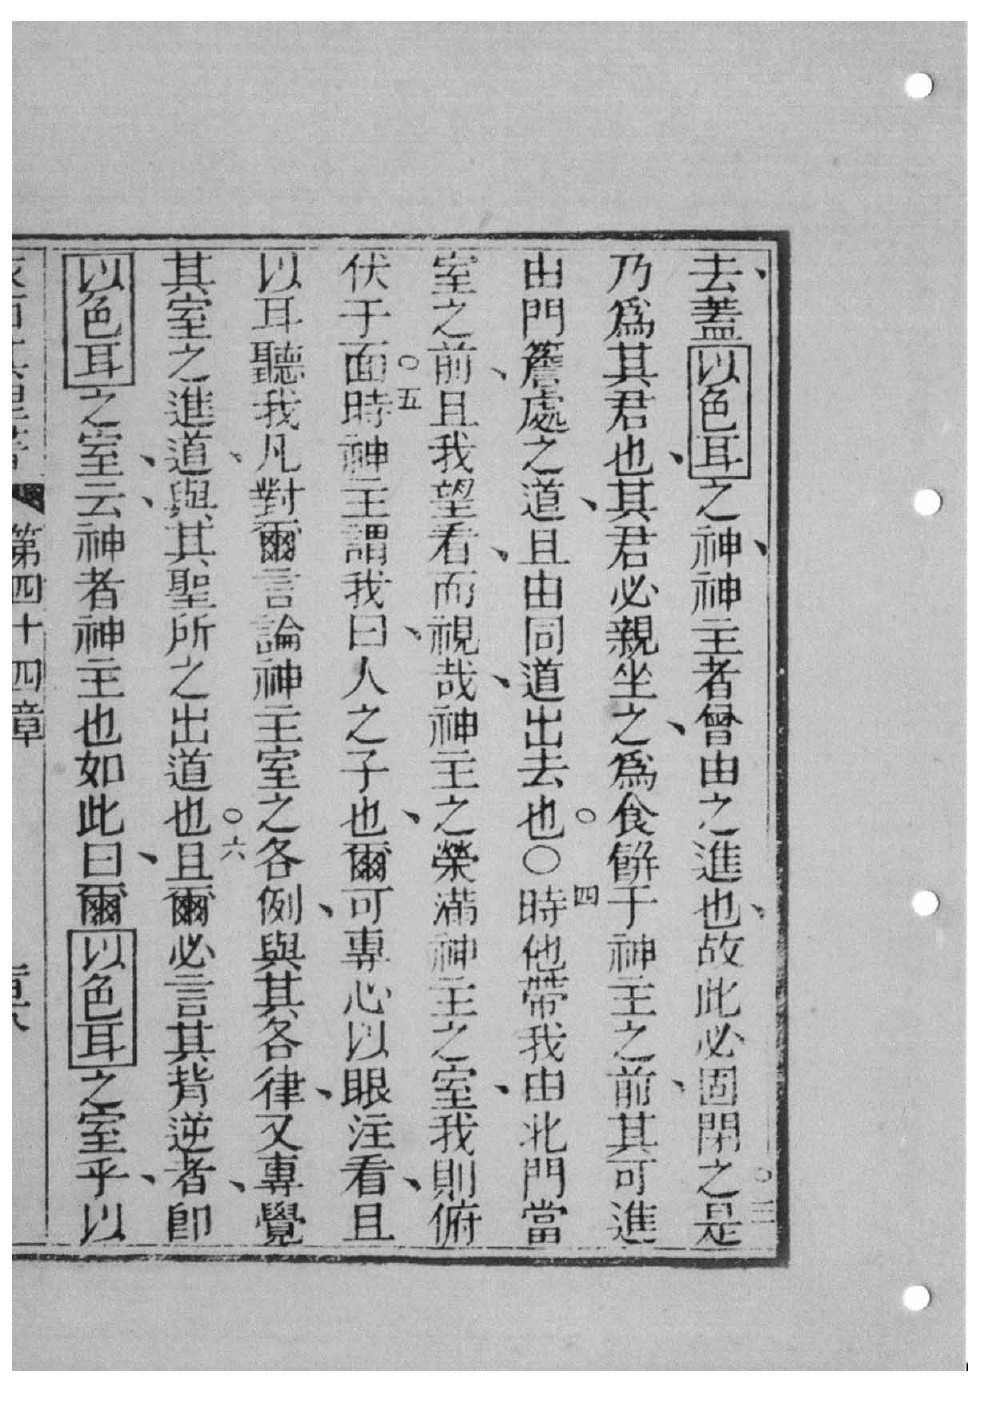 去、蓋以色耳之神、神主者曾由之進也、故此必固閉之○三是
乃爲其君也、其君必親坐之、爲食餅于神主之前、其可進
由門簷處之道、且由同道出去也。○四時他帶我由北門當
室之前、且我望看、而視哉、神主之榮滿神主之室、我則俯
伏于面○五時神主謂我曰、人之子也、爾可專心以眼注看、且
以耳聽我凡對爾言論神主室之各例、與其各律、又專覺
其室之進道、與其聖所之出道也○六且爾必言其背逆者、卽
以色耳之室、云、神者神主也如此曰、爾以色耳之室乎、以
第四十四章